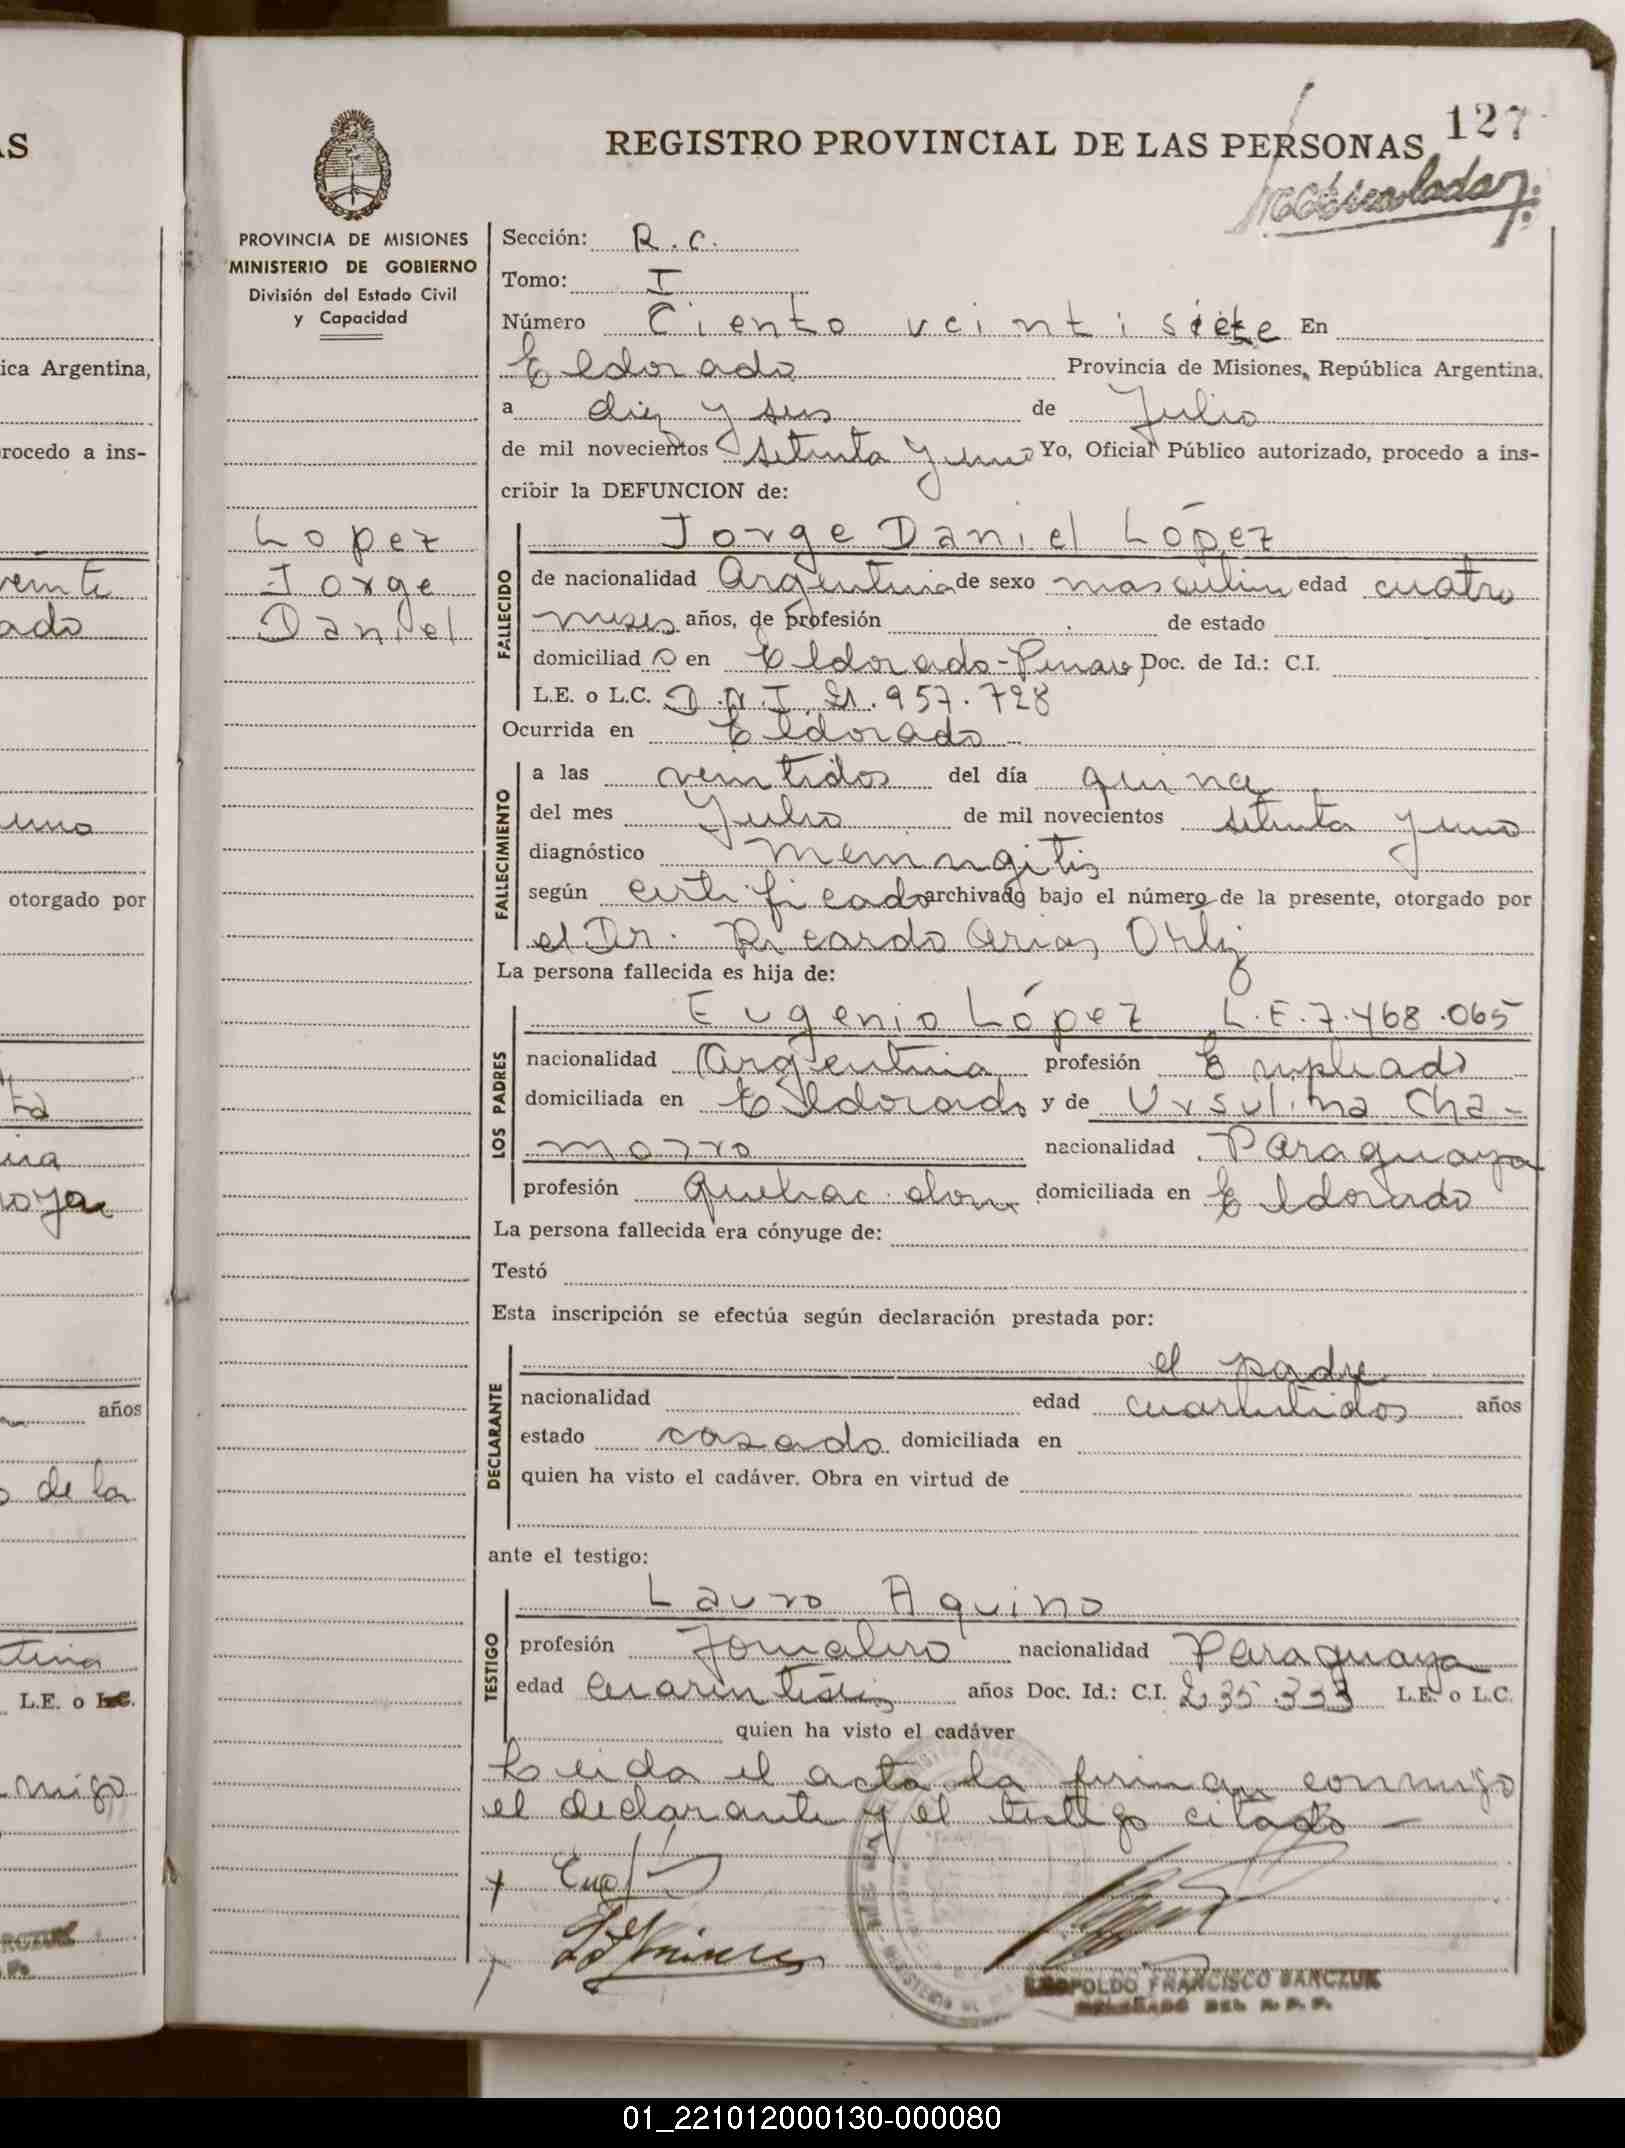 REGISTRO PROVINCIAL DE LAS PERSONAS
127
PROVINCIA DE MISIONES
MINISTERIO DE GOBIERNO
División del Estado Civil
y Capacidad
Sección: R. C.
Tomo: I
Número Ciento veintisiete En
Eldorado Provincia de Misiones, República Argentina,
a diez y seis de Julio
de mil novecientos setenta y uno Yo, Oficial Público autorizado, procedo a ins-
cribir la DEFUNCION de:
Lopez
Jorge
Daniel
FALLECIDO
Jorge Daniel López
de nacionalidad Argentina de sexo masculino edad cuatro
meses años, de profesión de estado
domiciliado en Eldorado - Doc. de Id.: C.I.
L.E. o L.C. D.N.I. 21.957.728
Ocurrida en Eldorado
FALLECIMIENTO
a las veintidos del día quince
del mes Julio de mil novecientos setenta y uno
diagnóstico Meningitis
según certificado archivado bajo el número de la presente, otorgado por
el Dr. Ricardo Arias Ortiz
La persona fallecida es hija de:
LOS PADRES
Eugenio López L.E. 7.468.065
nacionalidad Argentina profesión Empleado
domiciliada en Eldorado y de Ursulina Cha-
morro nacionalidad Paraguaya
profesión domiciliada en Eldorado
La persona fallecida era cónyuge de:
Testó
Esta inscripción se efectúa según declaración prestada por:
DECLARANTE
el padre
nacionalidad edad cuarentidos años
estado casado domiciliada en
quien ha visto el cadáver. Obra en virtud de
ante el testigo:
TESTIGO
Lauro Aquino
profesión Jornalero nacionalidad Paraguaya
edad años Doc. Id.: C.I. 235.333 L.E. o L.C.
quien ha visto el cadáver
Leida el acta la firman conmigo
el declarante y el testigo citado -
LEOPOLDO FRANCISCO BANCZUK
DELEGADO DEL R. P. P.
AS
ica Argentina,
rocedo a ins-
veinte
ado
uno
otorgado por
años
de la
L.E. o L.C.
migo
01_221012000130-000080